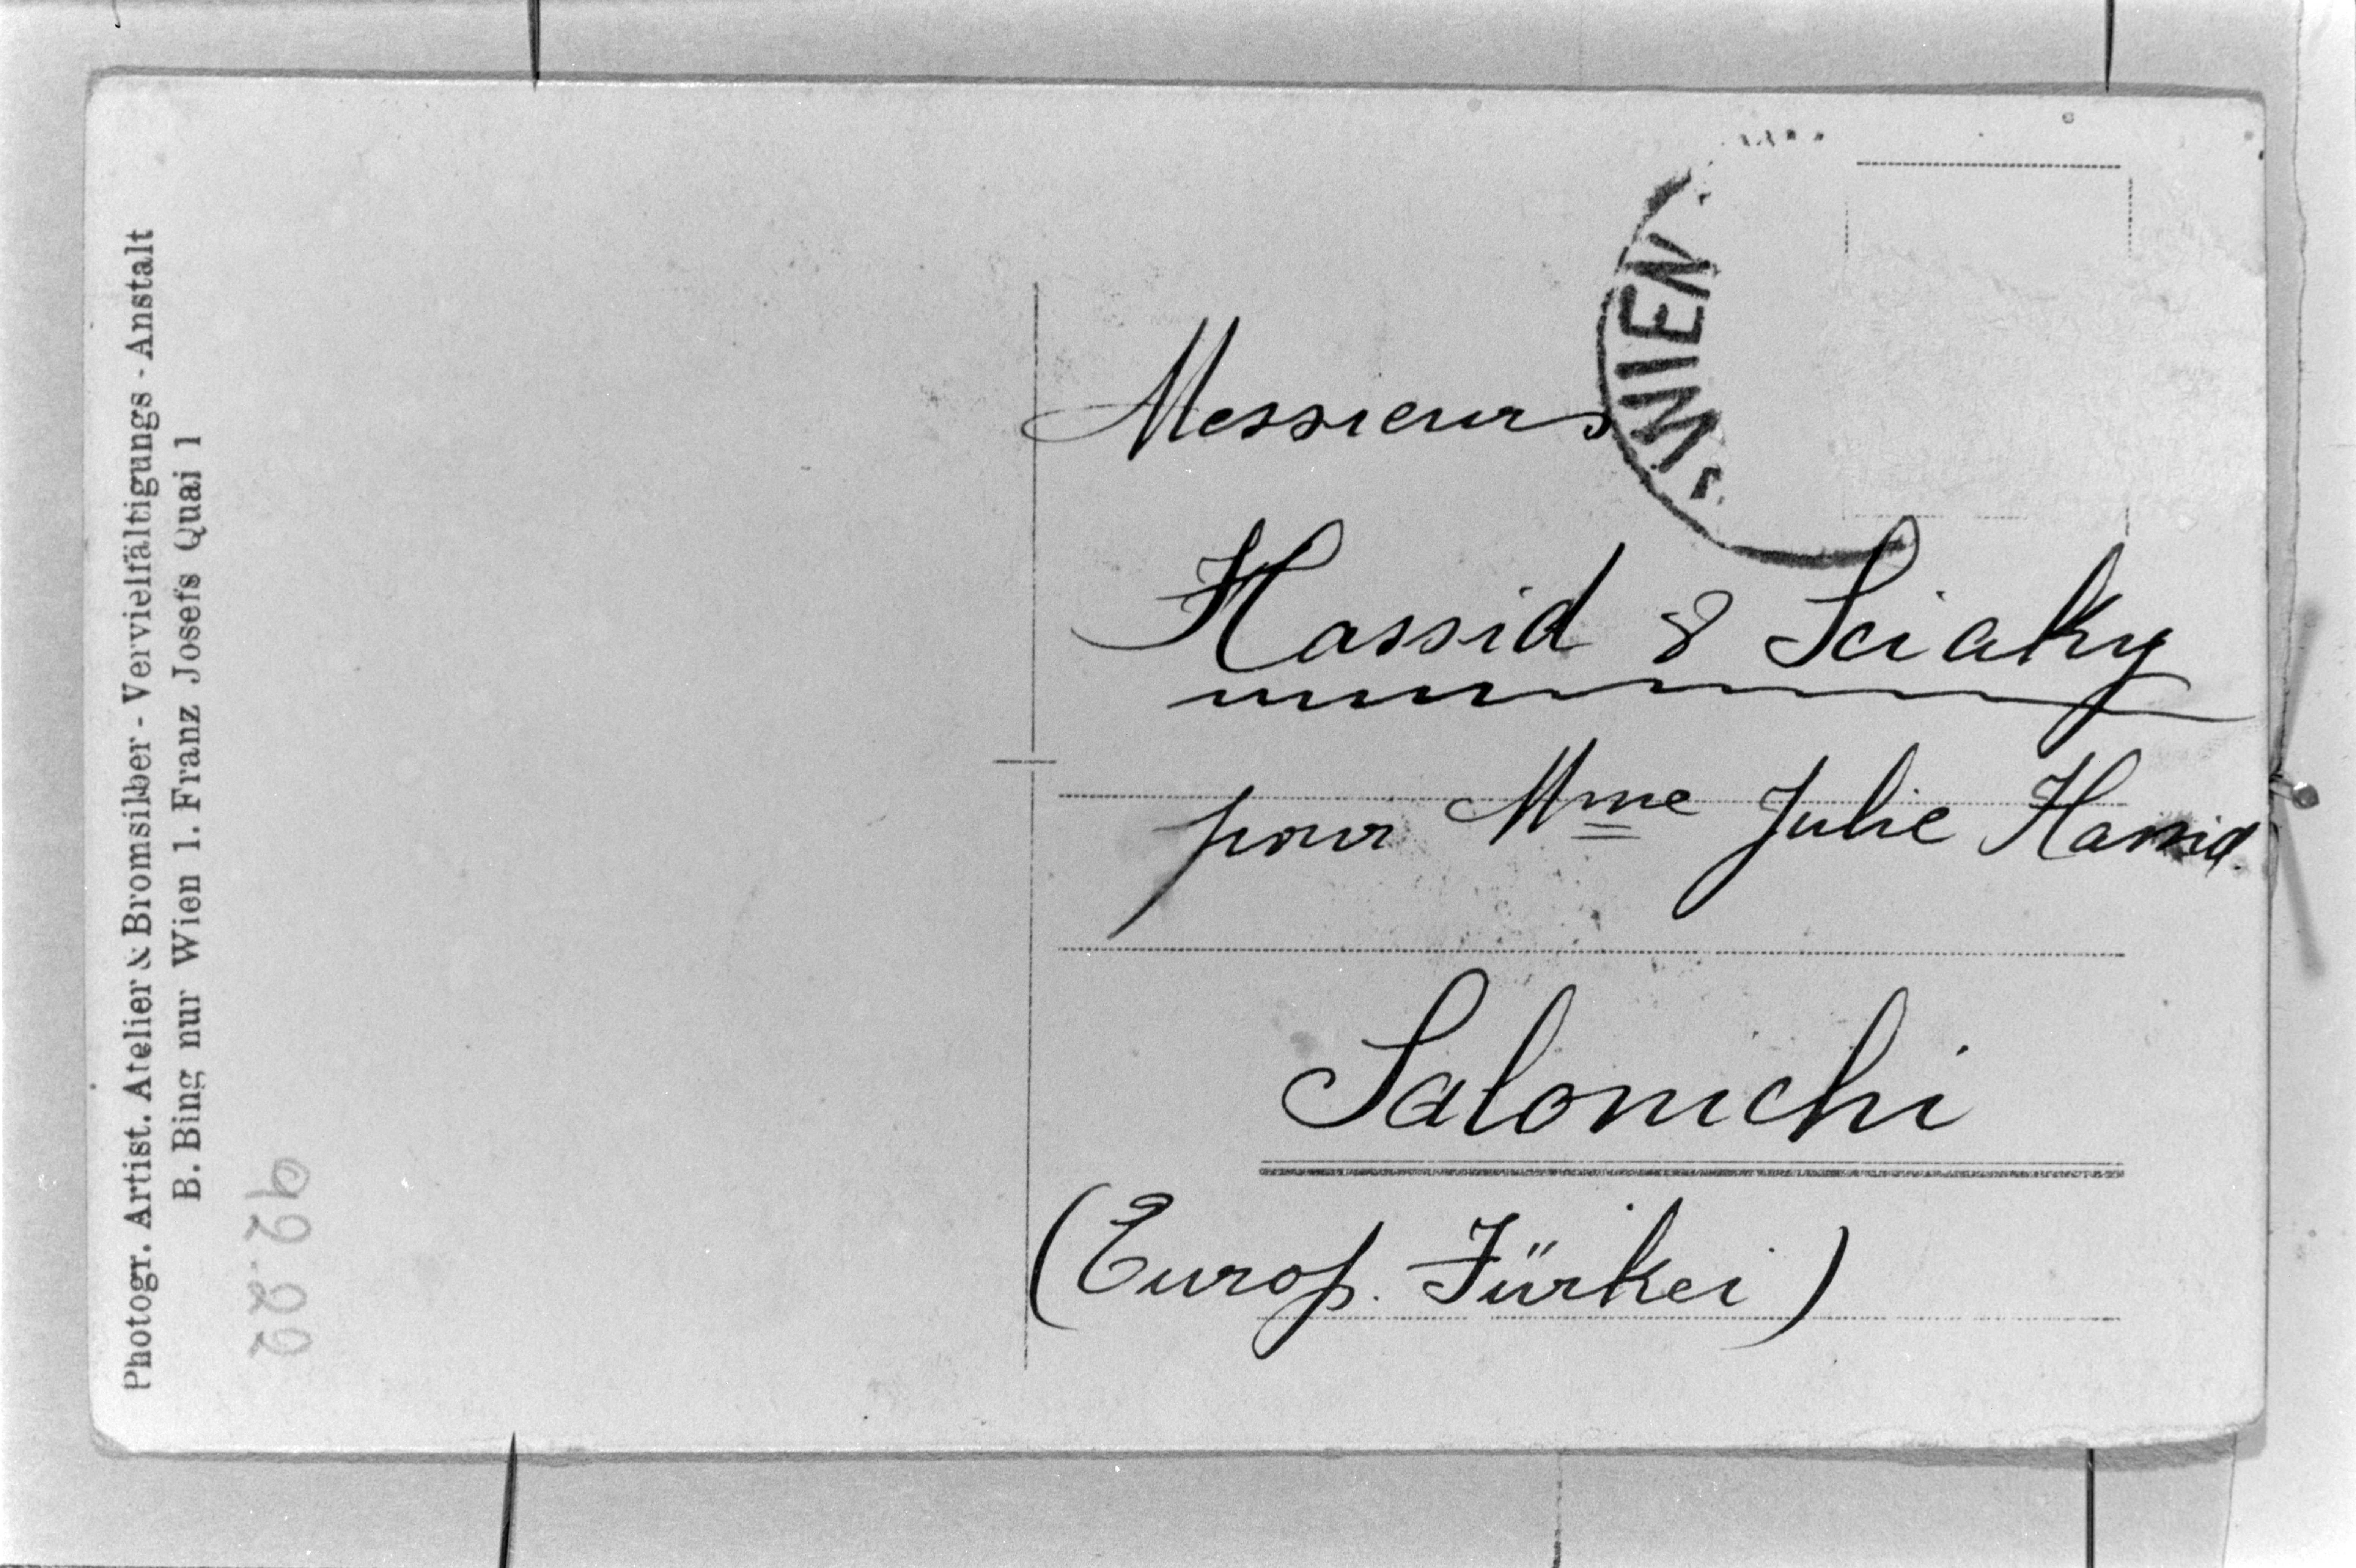 Photogr. Artist. Atelier & Bromsilber - Vervielfältigungs - Anstalt
B. Bing nur Wien 1. Franz Josefs Quai 1
92.22
WIEN
Messieurs
Hassid & Sciaky
pour Mme Julie Hassid
Salonichi
(Europ. Türkei)